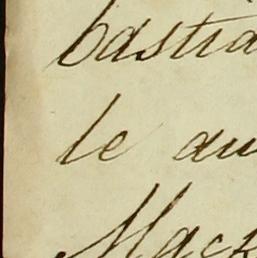 bastia
le au
Mack